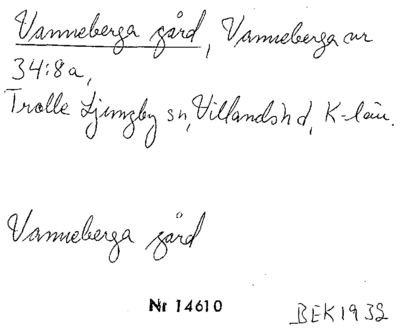 Vanneberga gård, Vanneberga nr
34:8a,
Trolle Ljungby sn, Villands hd, K-län.
Vanneberga gård
Nr 14610
BEK 1932